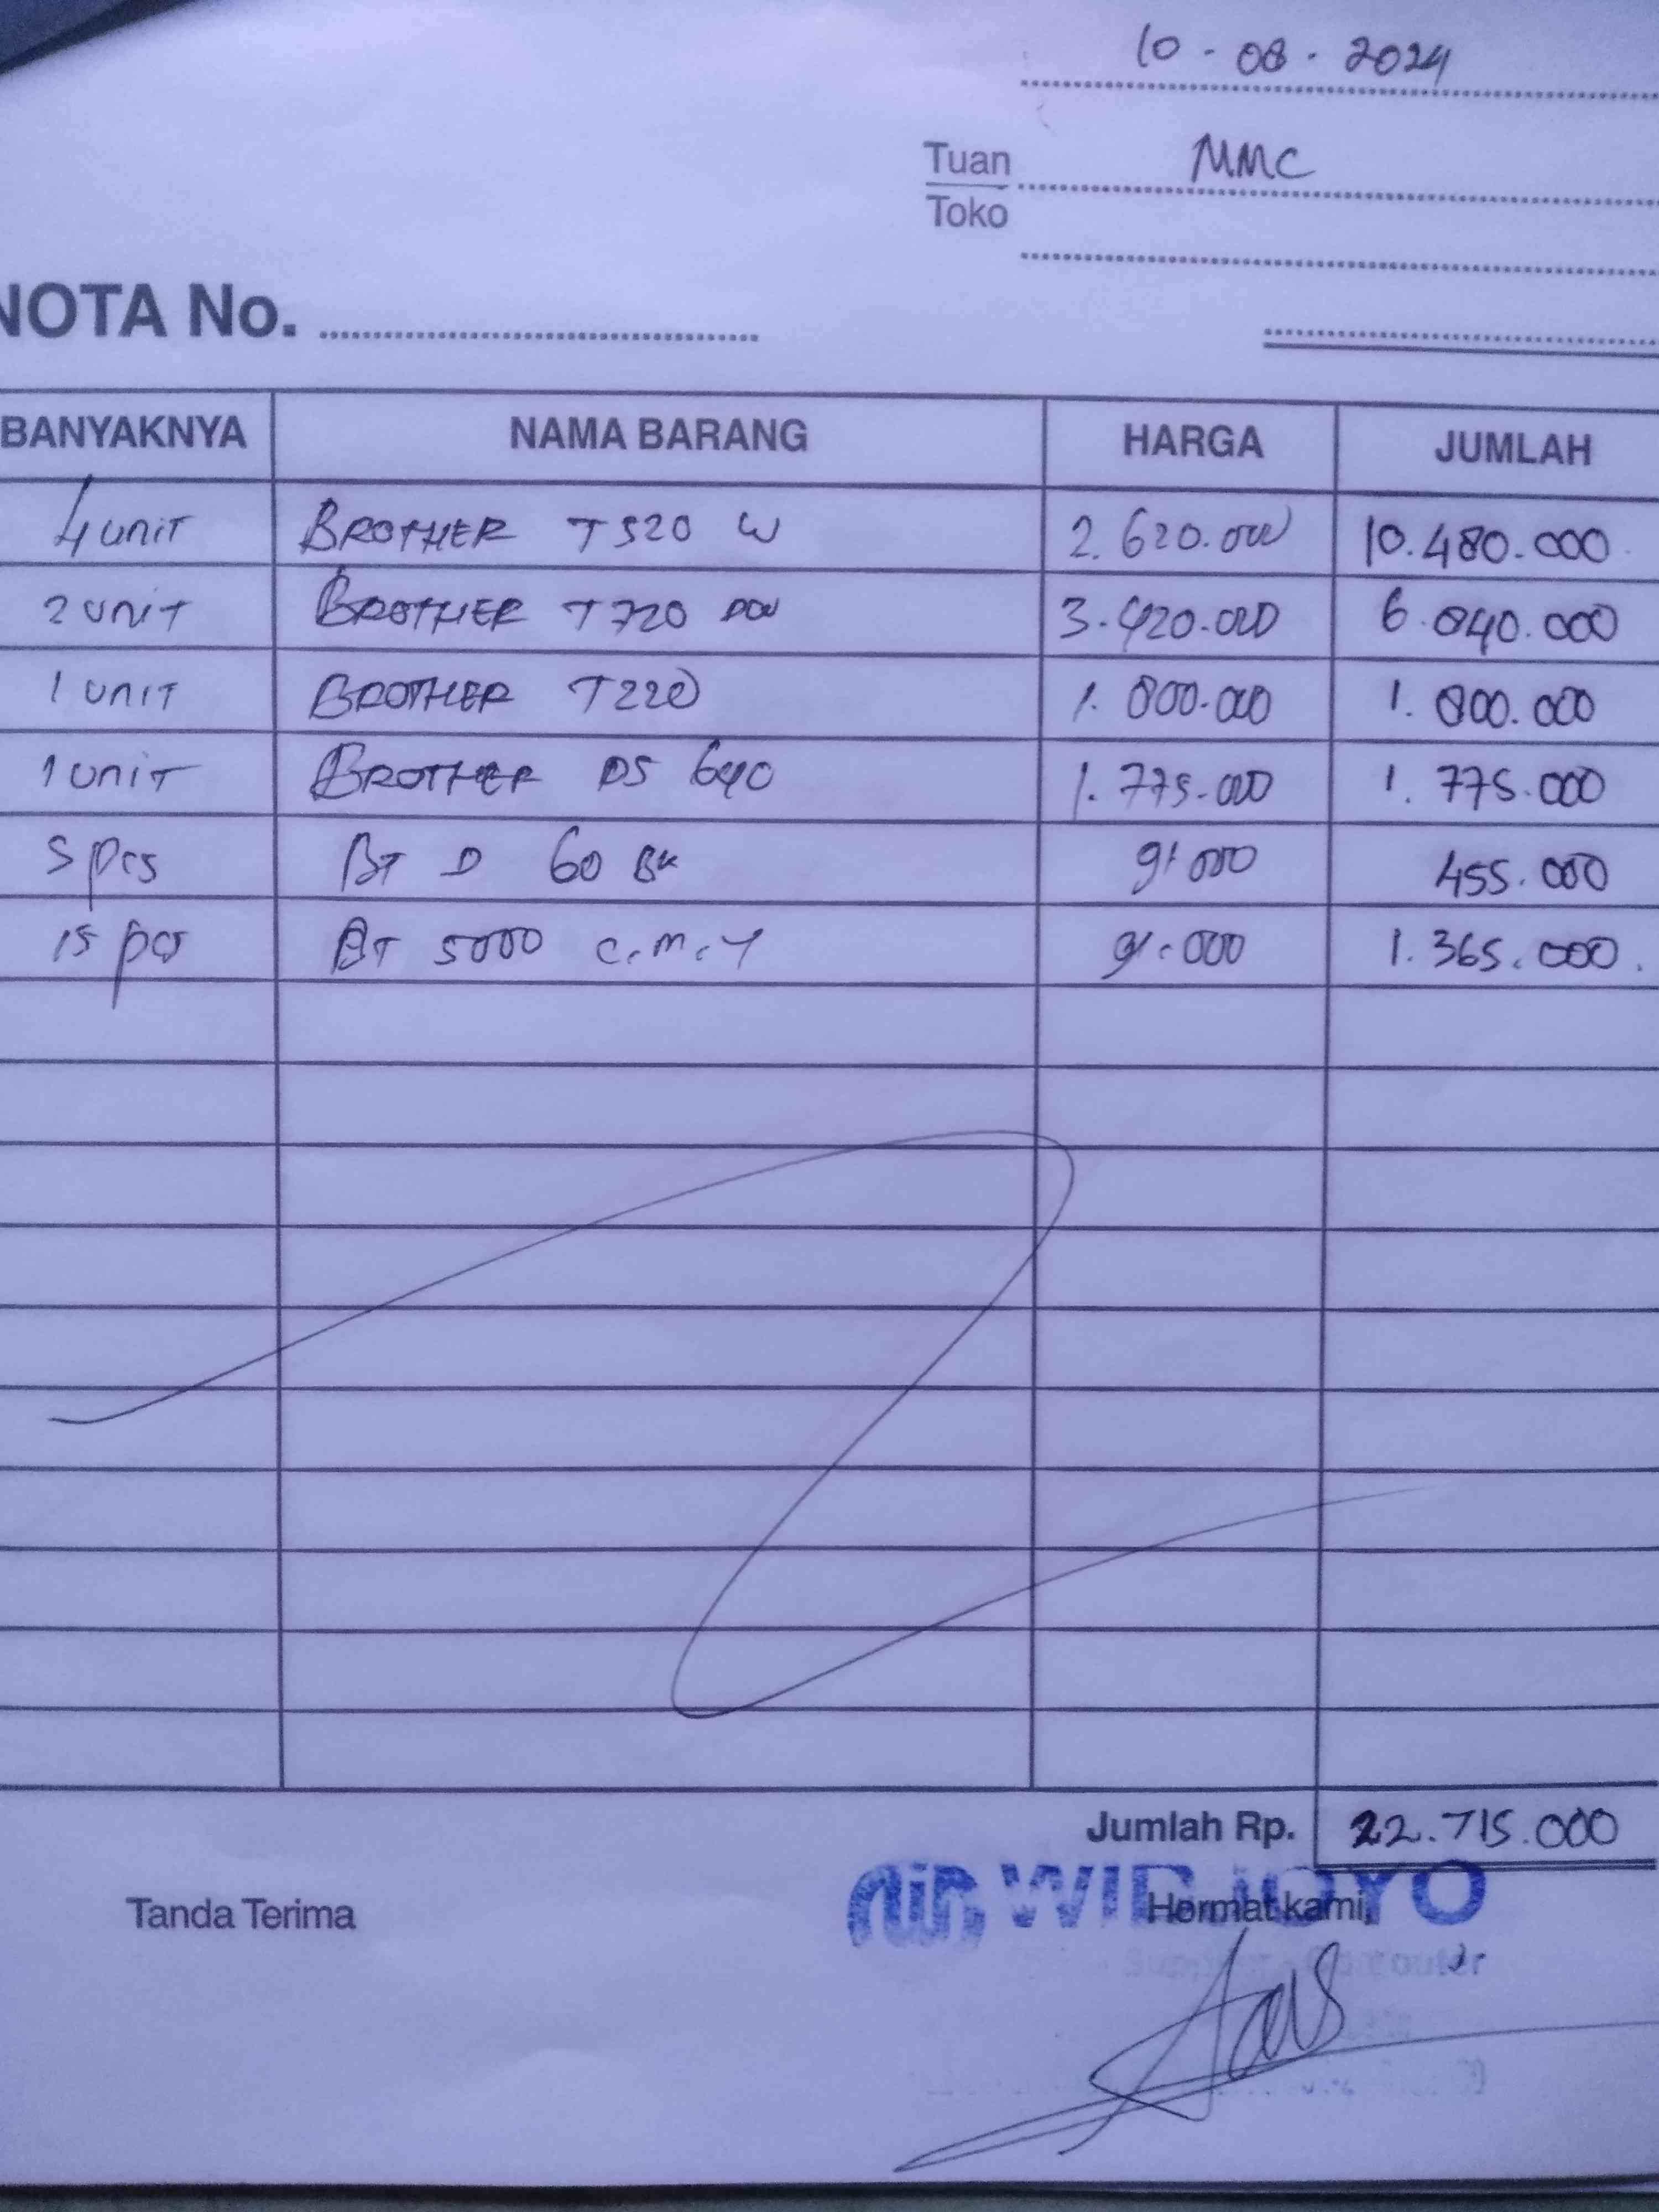 10 - 08 - 2024
Tuan MMC
Toko
NOTA No.
BANYAKNYA NAMA BARANG HARGA JUMLAH
4 unit BROTHER T520 W 2.620.000 10.480.000
2 unit BROTHER T720 DW 3.420.000 6.840.000
1 unit BROTHER T220 1.800.000 1.800.000
1 unit BROTHER DS 640 1.775.000 1.775.000
5 pcs BT D 60 BK 91.000 455.000
15 pcs BT 5000 C.M.Y 91.000 1.365.000
Jumlah Rp. 22.715.000
Tanda Terima Hormat kami,